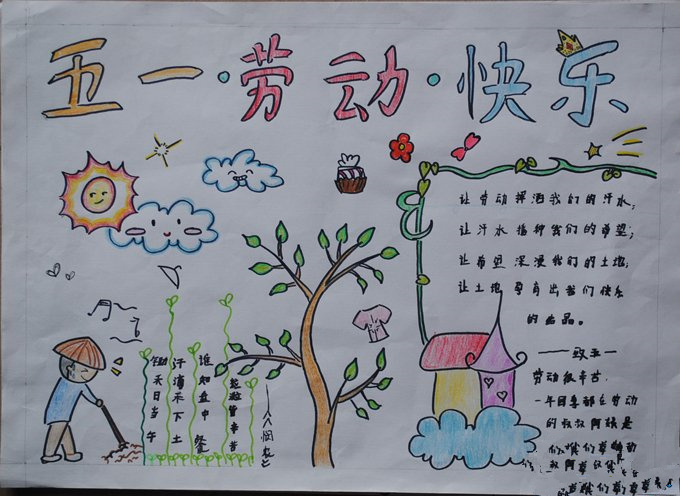 五一·劳动·快乐
让劳动挥洒我们的汗水;
让汗水播种我们的希望;
让希望深浸我们的土地;
让土地孕育出我们快乐
的出品。
——致五一
锄禾日当午
汗滴禾下土
谁知盘中餐
粒粒皆辛苦
——《悯农》
劳动很辛苦,
一年四季都在劳动
的叔叔阿姨是